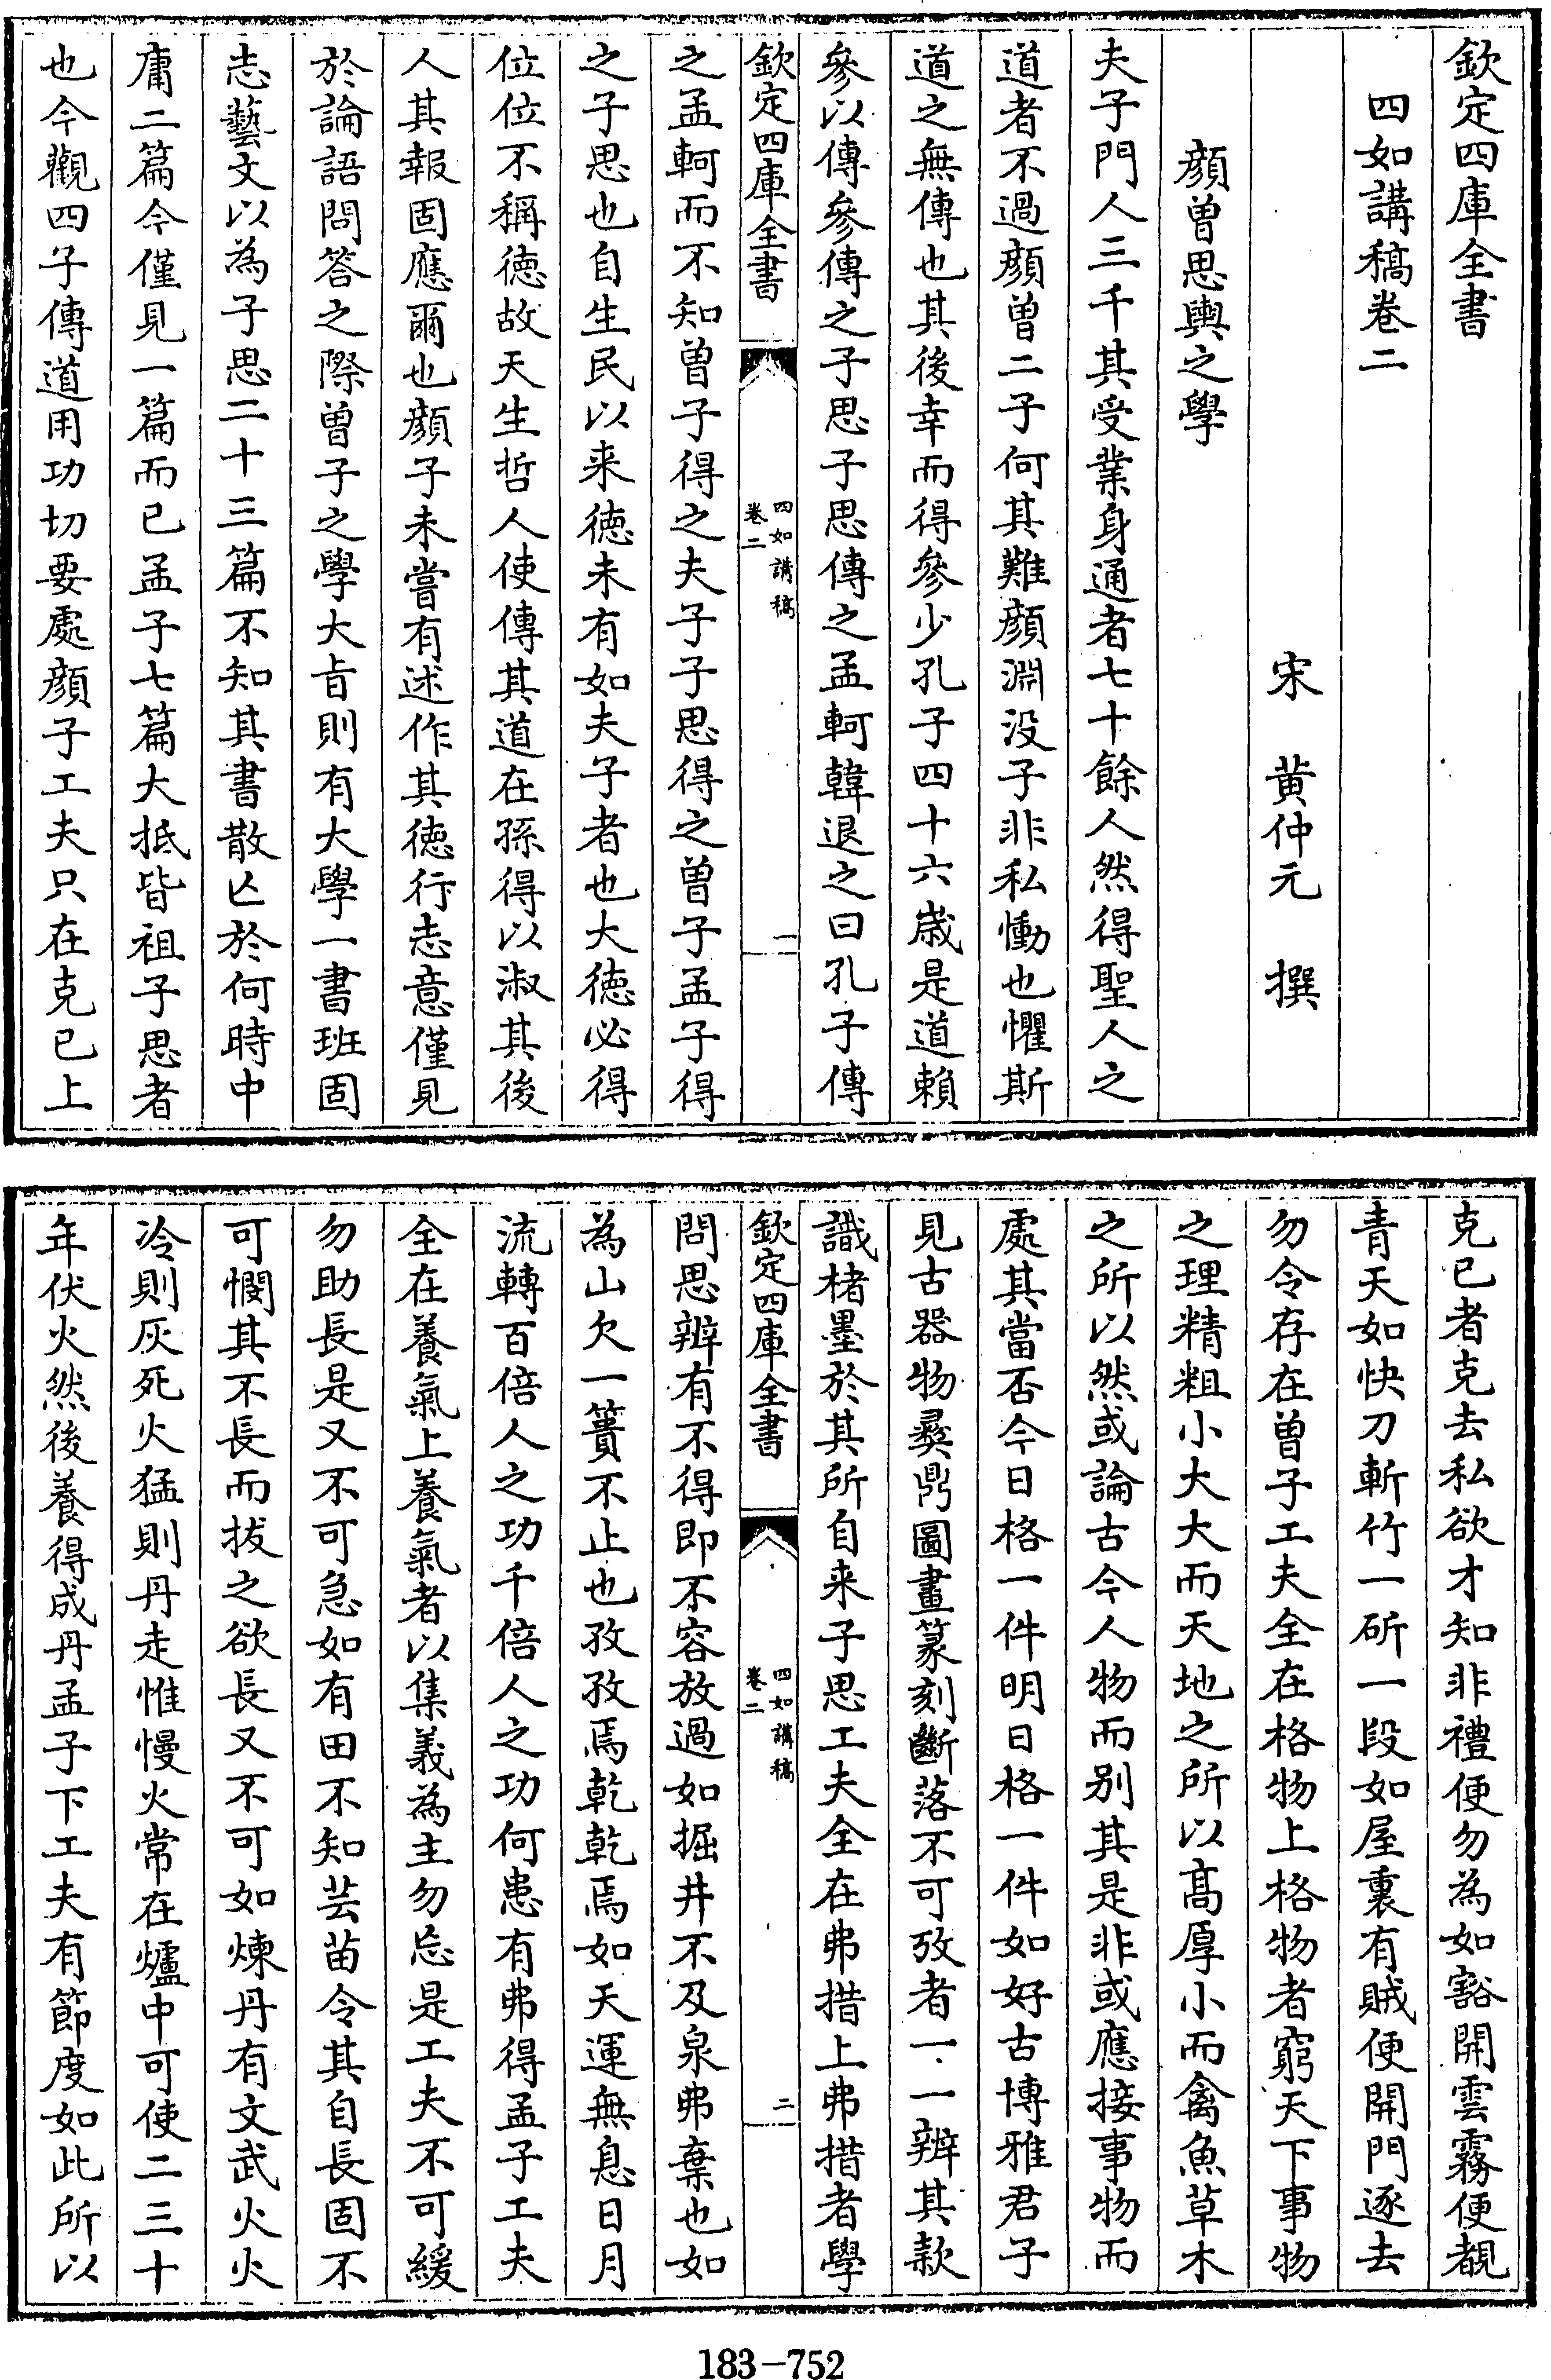 欽定四庫全書
四如講稿卷二
宋　黄仲元　撰
顔曾思輿之學
夫子門人三千其受業身通者七十餘人然得聖人之
道者不過顔曾二子何其難顔淵没子非私慟也懼斯
道之無傳也其後幸而得參少孔子四十六歲是道賴
參以傳參傳之子思子思傳之孟軻韓退之曰孔子傳
欽定四庫全書
四如講稿
卷二
一
之孟軻而不知曾子得之夫子子思得之曾子孟子得
之子思也自生民以来徳未有如夫子者也大徳必得
位位不稱徳故天生哲人使傳其道在孫得以淑其後
人其報固應爾也顔子未嘗有述作其徳行志意僅見
於論語問答之際曾子之學大㫖則有大學一書班固
志藝文以為子思二十三篇不知其書散亡於何時中
庸二篇今僅見一篇而已孟子七篇大抵皆祖子思者
也今觀四子傳道用功切要處顔子工夫只在克已上
克已者克去私欲才知非禮便勿為如豁開雲霧便覩
青天如快刀斬竹一斫一段如屋裏有賊便開門逐去
勿令存在曾子工夫全在格物上格物者窮天下事物
之理精粗小大大而天地之所以髙厚小而禽魚草木
之所以然或論古今人物而别其是非或應接事物而
處其當否今日格一件明日格一件如好古博雅君子
見古器物彛鼎圖畫篆刻斷落不可攷者一一辨其款
識楮墨於其所自来子思工夫全在弗措上弗措者學
欽定四庫全書
四如講稿
卷二
二
問思辨有不得即不容放過如掘井不及泉弗棄也如
為山欠一簣不止也孜孜焉乾乾焉如天運無息日月
流轉百倍人之功千倍人之功何患有弗得孟子工夫
全在養氣上養氣者以集義為主勿忘是工夫不可緩
勿助長是又不可急如有田不知芸苗令其自長固不
可憫其不長而拔之欲長又不可如煉丹有文武火火
冷則灰死火猛則丹走惟慢火常在爐中可使二三十
年伏火然後養得成丹孟子下工夫有節度如此所以
183-752